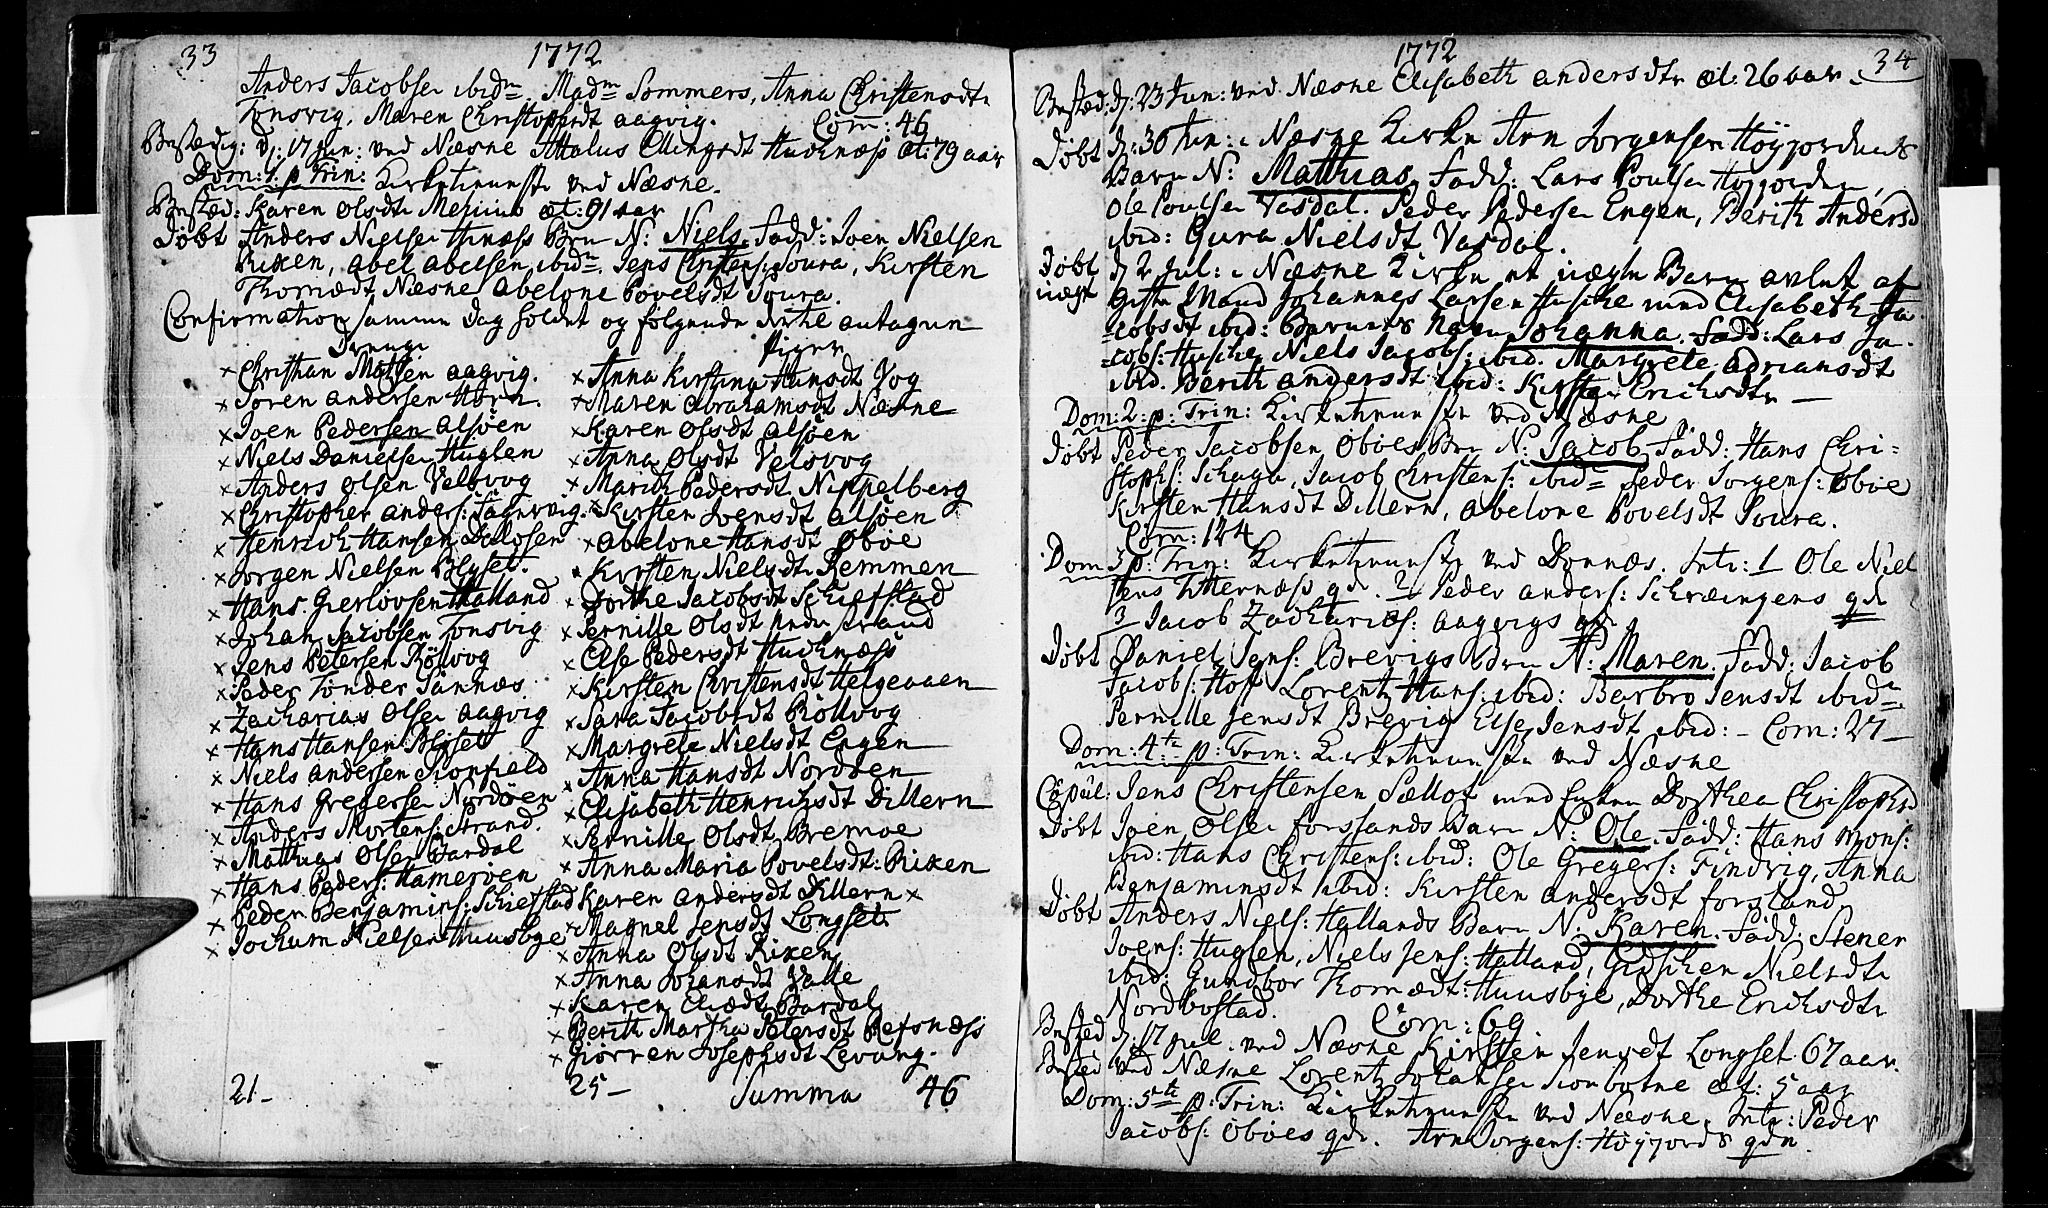 33
1772
Anders Jacobsen ibidm. Madm Sommers, Anna Christensdtr
Tonsvig, Maren Christophdt aagvig. Com: 46
d: 17 Jun: ved Næsne Ellingsdt æt: 79 aar
Dom: 1. p Trin: Kirketienneste ved Næsne.
Karen Olsdtr æt: 91 aar
Døbt Anders Nielsen Barn N: Niels. Fadd: Joen Nielsen
Rixen, Abel Abelsen ibidm. Jens Christens: Soura, Kirsten
Thomædt Næsne Abelone Povelsdt Soura.
Confirmation samme Dag holdet og følgende antagen
Drenge
× Christian Matsen aagvig.
× Soren Andersen Horn.
× Joen Pedersen Alsöen
× Niels Danielsen Huglen
× Anders Olsen Velsvog
× Christopher Anders:
× Henrich Hansen Dalosen
× Jorgen Nielsen Blyset.
× Hans Gierlovsen Halland
× Johan Jacobsen Tonsvig
× Jens Petersen Röllvog
× Peder Tønder Sannæs
× Zacharias Olsen aagvig
× Hans Hansen Blyset
× Niels Andersen Sionfield
× Hans Gregersen Nordöen
× Anders Mortens: Strand.
× Matthias Olsen Bardal
× Hans Peders: Hameröen
× Peder Benjamins: Schiefstad
× Jochum Nielsen Huusbye
21-
Piger
× Anna Kirstina Hansdt Vog
× Maren Abrahamsdt Næsne
× Karen Olsdt Alsöen
× Anna Olsdt Velsvog
× Marith Pedersdt Nippelberg
× Kirsten Joensdt Alsöen
× Abelone Hansdt Øboe
× Kirsten Nielsdt Remmen
× Dorthe Jacobsdt Schiefstad
× Pernille Olsdt Strand
× Else Pedersdt
× Kirsten Christensdt Helgeaaen
× Sara Jacobsdt Röllvog
× Margrete Nielsdt Engen
× Anna Hansdt Nordöen
× Elisabeth Henrichsdt Dillern
× Pernille Olsdt Bremoe
× Anna Maria Povelsdt: Rixen
Karen Andersdt Dillern ×
× Magnel Jensdt Longset
× Anna Olsdt Rixen
× Anna Johansdt Valle
× Karen Eliædt Bardal
× Berith Martha Petersdt Refsnæss
× Giörren Josephsdt Levang.
25- Summa 46
1772
34
d: 23 Jun: ved Næsne Elisabeth Andersdtr æt: 26 aar
Døbt d: 30 Jun: i Næsne Kirke Arn Jorgensen Höyjordens
Barn N: Matthias, Fadd: Lars Poulsen Höyjorden,
Ole Poulsen Vasdal. Peder Pedersen Engen, Berith Andersd
ibid: Gura Nielsdt Vasdal.
Døbt d 2 Jul: i Næsne Kirke et uægte Barn avlet af
uægt gift Mand Johannes Larsen Husche med Elisabeth Ja-
cobsdt ibid: Barnets Navn Johanna. Fadd: Lars Ja-
cobs: Husche, Niels Jacobs: ibid. Margrete Adriansdt
ibid. Berith Andersdt ibid: Kirsten Erichsdtr —
Dom: 2: p: Trin: Kirketienneste ved Næsne
Døbt Peder Jacobsen Oboes Brn N: Jacob, Fadd: Hans Chri-
stophs: Schaga, Jacob Christens: ibidm Peder Jorgens: Oboe
Kirsten Hansdt Dillern, Abelone Povelsdt Soura.
Com: 124
Dom 3 p: Trin: Kirketienneste ved Dønnæs. Intr: 1 Ole Niel
sens Titternæss qde. 2 Peder Anders: qde
3 Jacob Zacharias: aagvigs qde
Døbt Daniel Jens: Brevigs Brn N: Maren. Fadd: Jacob
Jacobs: Hof Lorentz Hans: ibid: Barbro Jensdt ibidm.
Pernille Jensdt Brevig Else Jensdt ibid: – Com: 27 –
Dom: 4te p: Trin: Kirketienneste ved Næsne
Copul: Jens Christensen med Enken Dorthea Christophd
Døbt Joen Olsen Forslands Barn N: Ole. Fadd: Hans Mons:
ibid: Hans Christens: ibid: Ole Gregers: Findvig, Anna
Benjaminsdt ibid: Kirsten Andersdt Forsland,
Døbt Anders Niels: Hallands Barn N: Karen. Fadd: Stener
Joens: Huglen, Niels Jens: Halland, Gidschen Nielsdtr
ibid: Gundbor Thomædt: Huusbye, Dorthe Erichsdtr
Nordbostad. Com: 69
d: 17 Jul. ved Næsne Kirsten Jensdt Longset 67 aar.
ved Næsne Lorentz Johansen Sionbotne æt: 5 aar
Dom: 5te p: Trin: Kirketienneste ved Næsne. Intr: Peder
Jacobs: Oboes qde. Arn Jorgens: Höyjords qden.